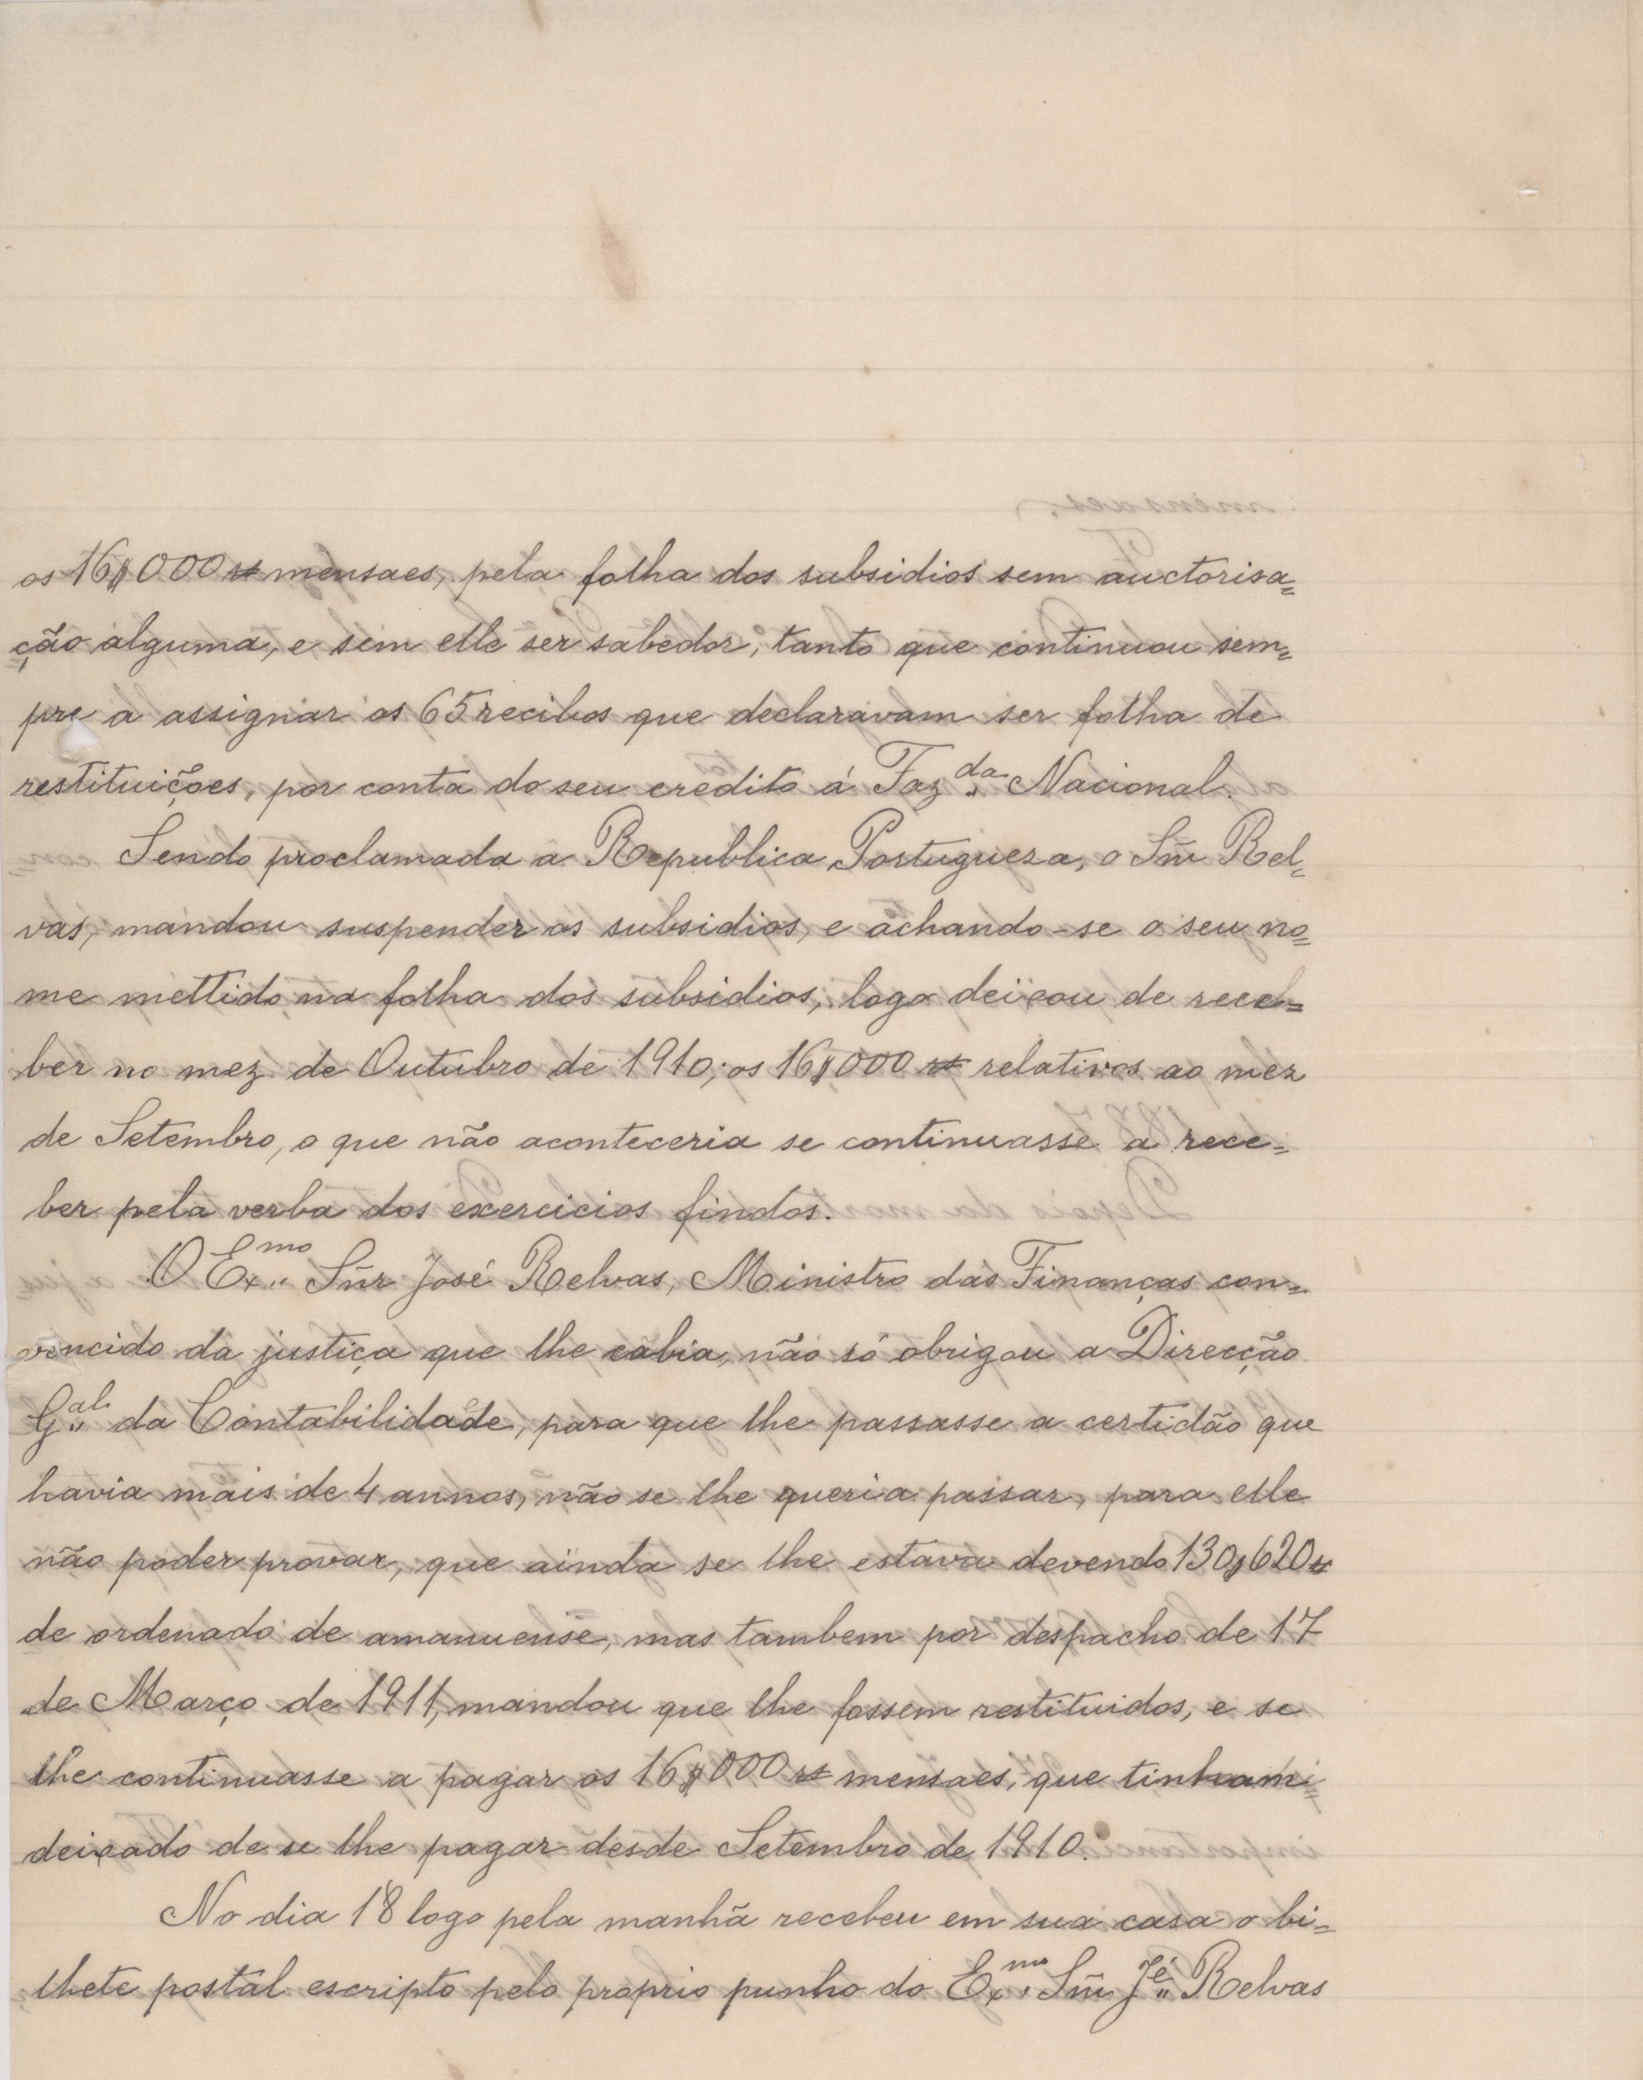 os 16$000 rs mensaes, pela folha dos subsidios sem auctorisa=
ção alguma, e sem elle ser sabedor, tanto que continuou sem=
pre a assignar os 65 recibos que declaravam ser folha de
restituições, por conta do seu credito á Faz.da Nacional.
Sendo proclamada a Republica Portugueza, o Sñr Rel=
vas, mandou suspender os subsidios, e achando-se o seu no=
me mettido na folha dos subsidios, logo deixou de rece=
ber no mez de Outubro de 1910, os 16$000 rs relativos ao mez
de Setembro, o que não aconteceria se continuasse a rece=
ber pela verba dos exercicios findos.
O Ex.mo Sñr José Relvas, Ministro das Finanças con=
vencido da justiça que lhe cabia, não só obrigou a Direcção
G.al da Contabilidade, para que lhe passasse a certidão que
havia mais de 4 annos, não se lhe queria passar, para elle
não poder provar, que ainda se lhe estava devendo 130$620 rs
de ordenado de amanuense, mas tambem por despacho de 17
de Março de 1911, mandou que lhe fossem restituidos, e se
lhe continuasse a pagar os 16$000 rs mensaes, que tinham
deixado de se lhe pagar desde Setembro de 1910.
No dia 18 logo pela manhã recebeu em sua casa o bi=
lhete postal escripto pelo proprio punho do Ex.mo Sñr J.é Relvas